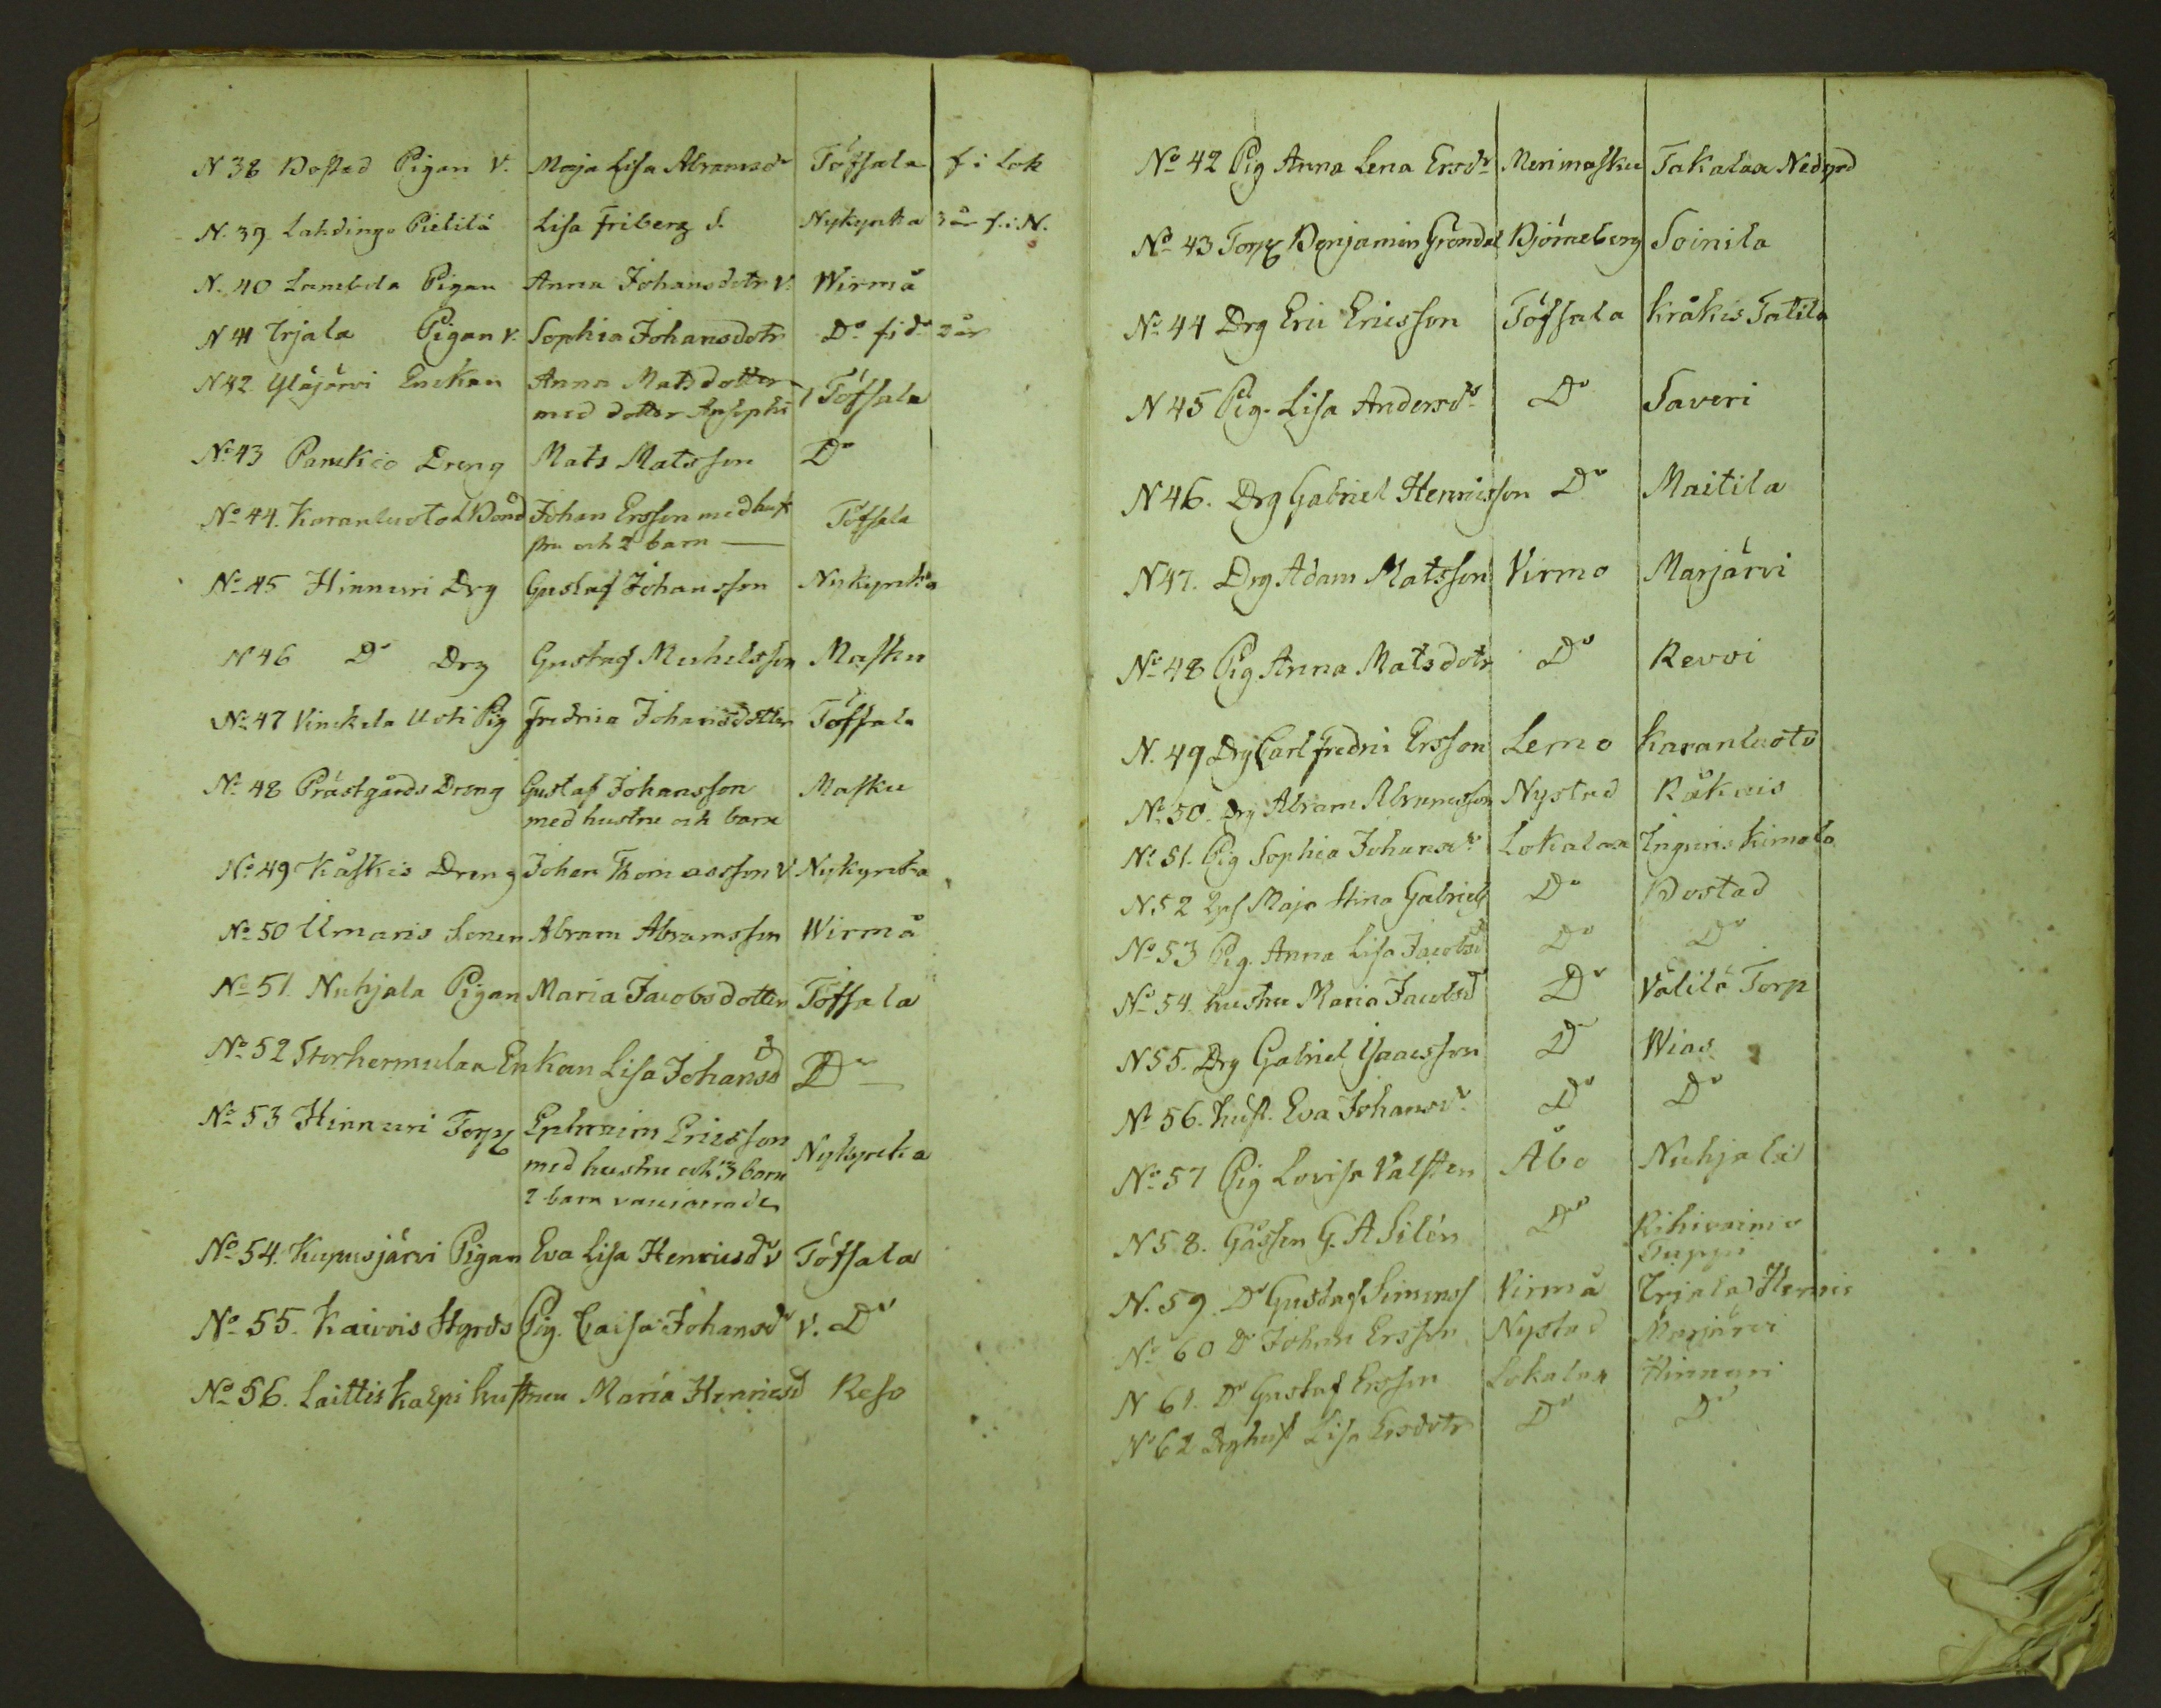 N 38 Bostad Pigan V. Maja Lisa Abramsdr Töfsala f i Lok
N. 39. Lahdingo Pietilä Lisa Friberg Nykyrka 3 år f. i N.
N. 40 Lambila Pigan Anna Johansdotr V. Wirmå
N 41 Irjala Pigan V. Sophia Johansdotr Do f i do 2 år
N 42 Yläjärvi Enckan Anna Matsdotter
med dotter Töfsala
No 43 Pankio Dreng Mats Matsson Do
No 44. Karanluoto Bond Johan Ersson med hu
stru och 2 barn Töfsala
No 45 Hinnuri Drg Gustaf Johansson Nykyrka
N 46 Do Drg Gustaf Michelsson Masku
No 47 Vinckila Uoti Pig Fredrica Johansdotter Töfsala
No 48 Prästgårds Dreng Gustaf Johansson Masku
med hustru och barn
No 49 Kåskis Dreng Johan Thomasson V Nykyrka
No 50 Umaris Sonen Abram Abramsson Wirmå
No 51. Nuhjala Pigan Maria Jacobsdotter Töfsala
No 52 Storhermulax Enkan Lisa Johansdr Do
No 53 Hinnuri Torp Ephraim Ericsson
med hustru och 3 barn Nykyrka
2 barn vaccinerade
No 54. Kupusjärvi Pigan Eva Lisa Henricsdr V Töfsala
No 55. Kaivois Hgrds Pig. Caisa Johansdr V. Do
No 56. Laittis Kalpi hustrun Maria Henricsd Reso
No 42 Pig Anna Lena Ersdr Merimasku Takalax Nedgrd
No 43 Torp Benjamin Gröndal Björneborg Soinila
No 44 Drg Eric Ericsson Töfsala Kråkis Tatila
N 45 Pig. Lisa Andersdr Do Saveri
N 46. Drg Gabriel Henricsson Do Maitila
N 47. Drg Adam Matsson Virmo Marjärvi
No 48 Pig Anna Matsdotr Do Revoi
N. 49 Drg Carl Fredric Ersson Lemo Karanluoto
No 50. Drg Abram Abramsson Nystad Råkois
No 51. Pig Sophia Johansdr Lokalax Inguris Kimala
N. 52 Maja Stina Gabriels Do Bostad
No 53 Pig. Anna Lisa Jacobsd Do Do
No 54. hustru Maria Jacobsd Do Välilä Torp
N 55. Drg Gabriel Isaacsson D Wias
No 56. hust. Eva Johansdr Do Do
No 57 Pig Lovisa Valsten Åbo Nuhjala
N 58. Gossen G. A Silén Do Rihivainio
Tuppi
N. 59. Do Gustaf Simons Virmå Irjala
No 60 Do Johan Ersson Nystad Marjärvi
N 61. Do Gustaf Ersson Lokalax Hinnuri
No 62 Drghust Lisa Ersdotr Do Do